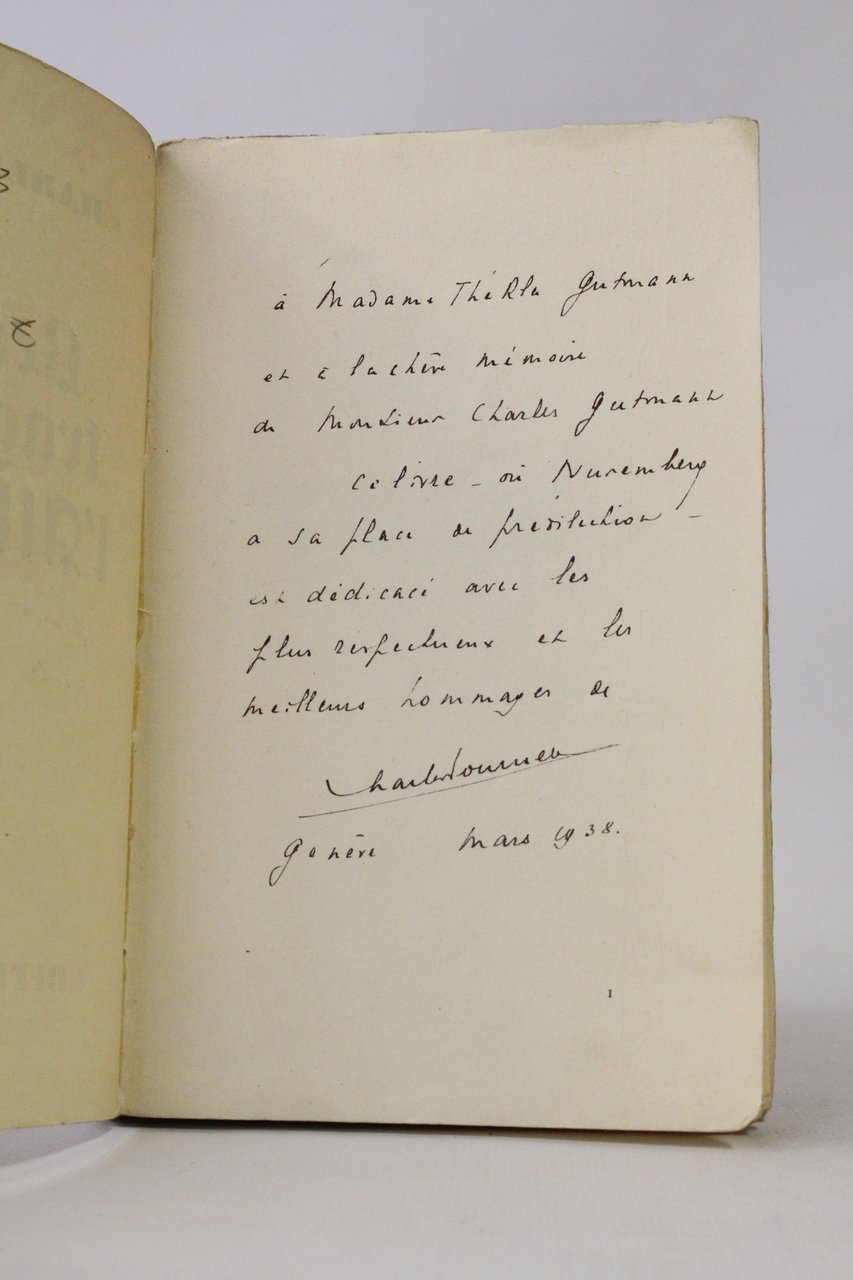 à Madame Thékla Gutmann
et à la chère mémoire
de Monsieur Charles Gutmann
ce livre - où Nuremberg
a sa place de prédilection -
est dédicacé avec les
plus respectueux et les
meilleurs hommages de
Charles Fournet
Genève Mars 1938.
I